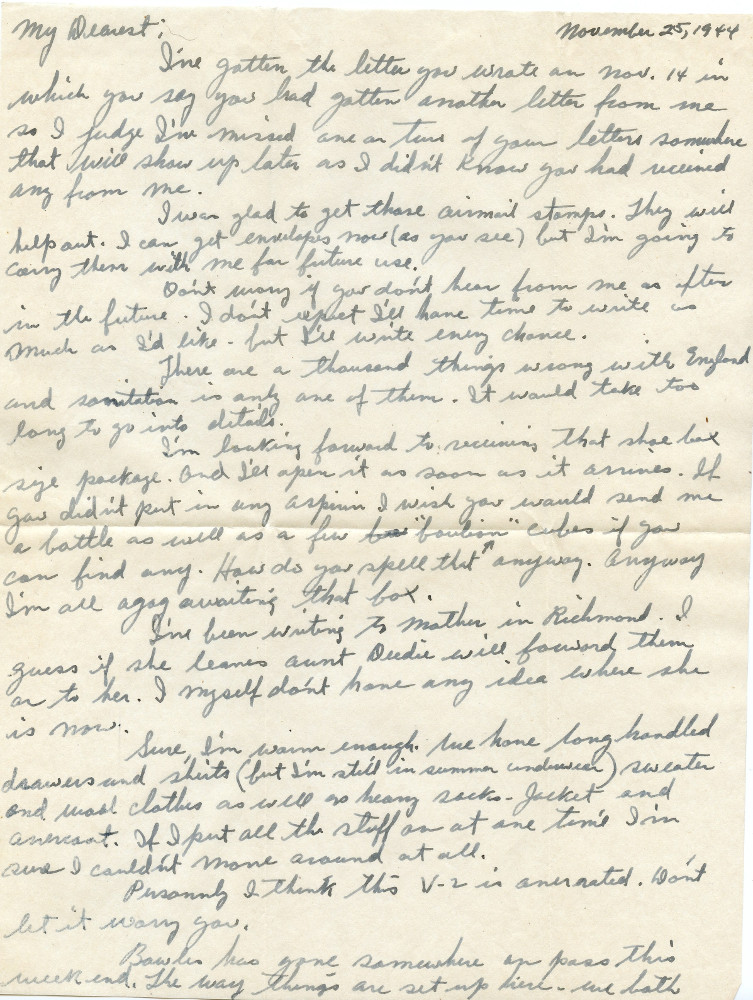 My Dearest;
November 25, 1944
I've gotten the letter you wrote on Nov. 14 in
which you say you had gotten another letter from me
so I judge I've missed one or two of your letters somewhere
that will show up later as I didn't know you had received
any from me.
I was glad to get those airmail stamps. They will
help out. I can get envelopes now (as you see) but I'm going to
carry them with me for future use.
Don't worry if you don't hear from me as often
in the future. I don't expect I'll have time to write as
much as I'd like - but I'll write every chance.
There are a thousand things wrong with England
and sanitation is only one of them. It would take too
long to go into details.
I'm looking forward to receiving that shoe box
size package. And I'll open it as soon as it arrives. If
you didn't put in any aspirin I wish you would send me
a bottle as well as a few "boulion" cubes if you
can find any. How do you spell that ↑ anyway. Anyway
I'm all agog awaiting that box.
I've been writing to Mother in Richmond. I
guess if she leaves aunt Deedie will forward them
on to her. I myself don't have any idea where she
is now.
Sure, I'm warm enough. We have long handled
drawers and shirts (but I'm still in summer underwear) sweater
and wool clothes as well as heavy socks - Jacket and
overcoat. If I put all the stuff on at one time I'm
sure I couldn't move around at all.
Personnly I think this V-2 is overrated. Don't
let it worry you.
Bowles has gone somewhere on pass this
weekend. The way things are set up here - we both